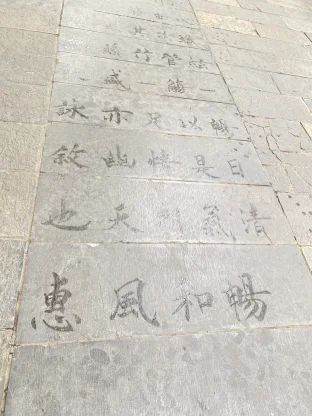 絲竹管絃
盛一觴一
詠亦足以暢
敘幽情是日
也天朗氣清
惠風和暢